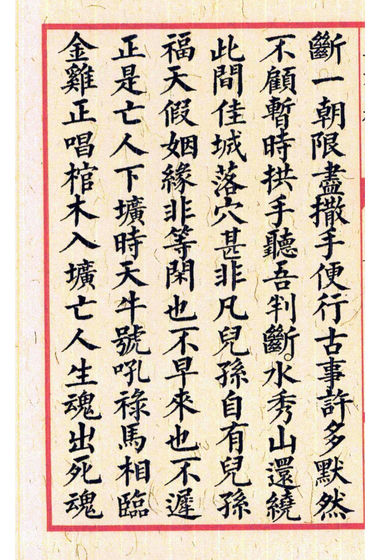 斷一朝限盡撒手便行古事許多默然
不顧暫時拱手聽吾判斷水秀山還繞
此間佳城落穴甚非凡兒孫自有兒孫
福天假姻緣非等閑也不早來也不遲
正是亡人下壙時天牛號吼祿馬相臨
金雞正唱棺木入壙亡人生魂出死魂